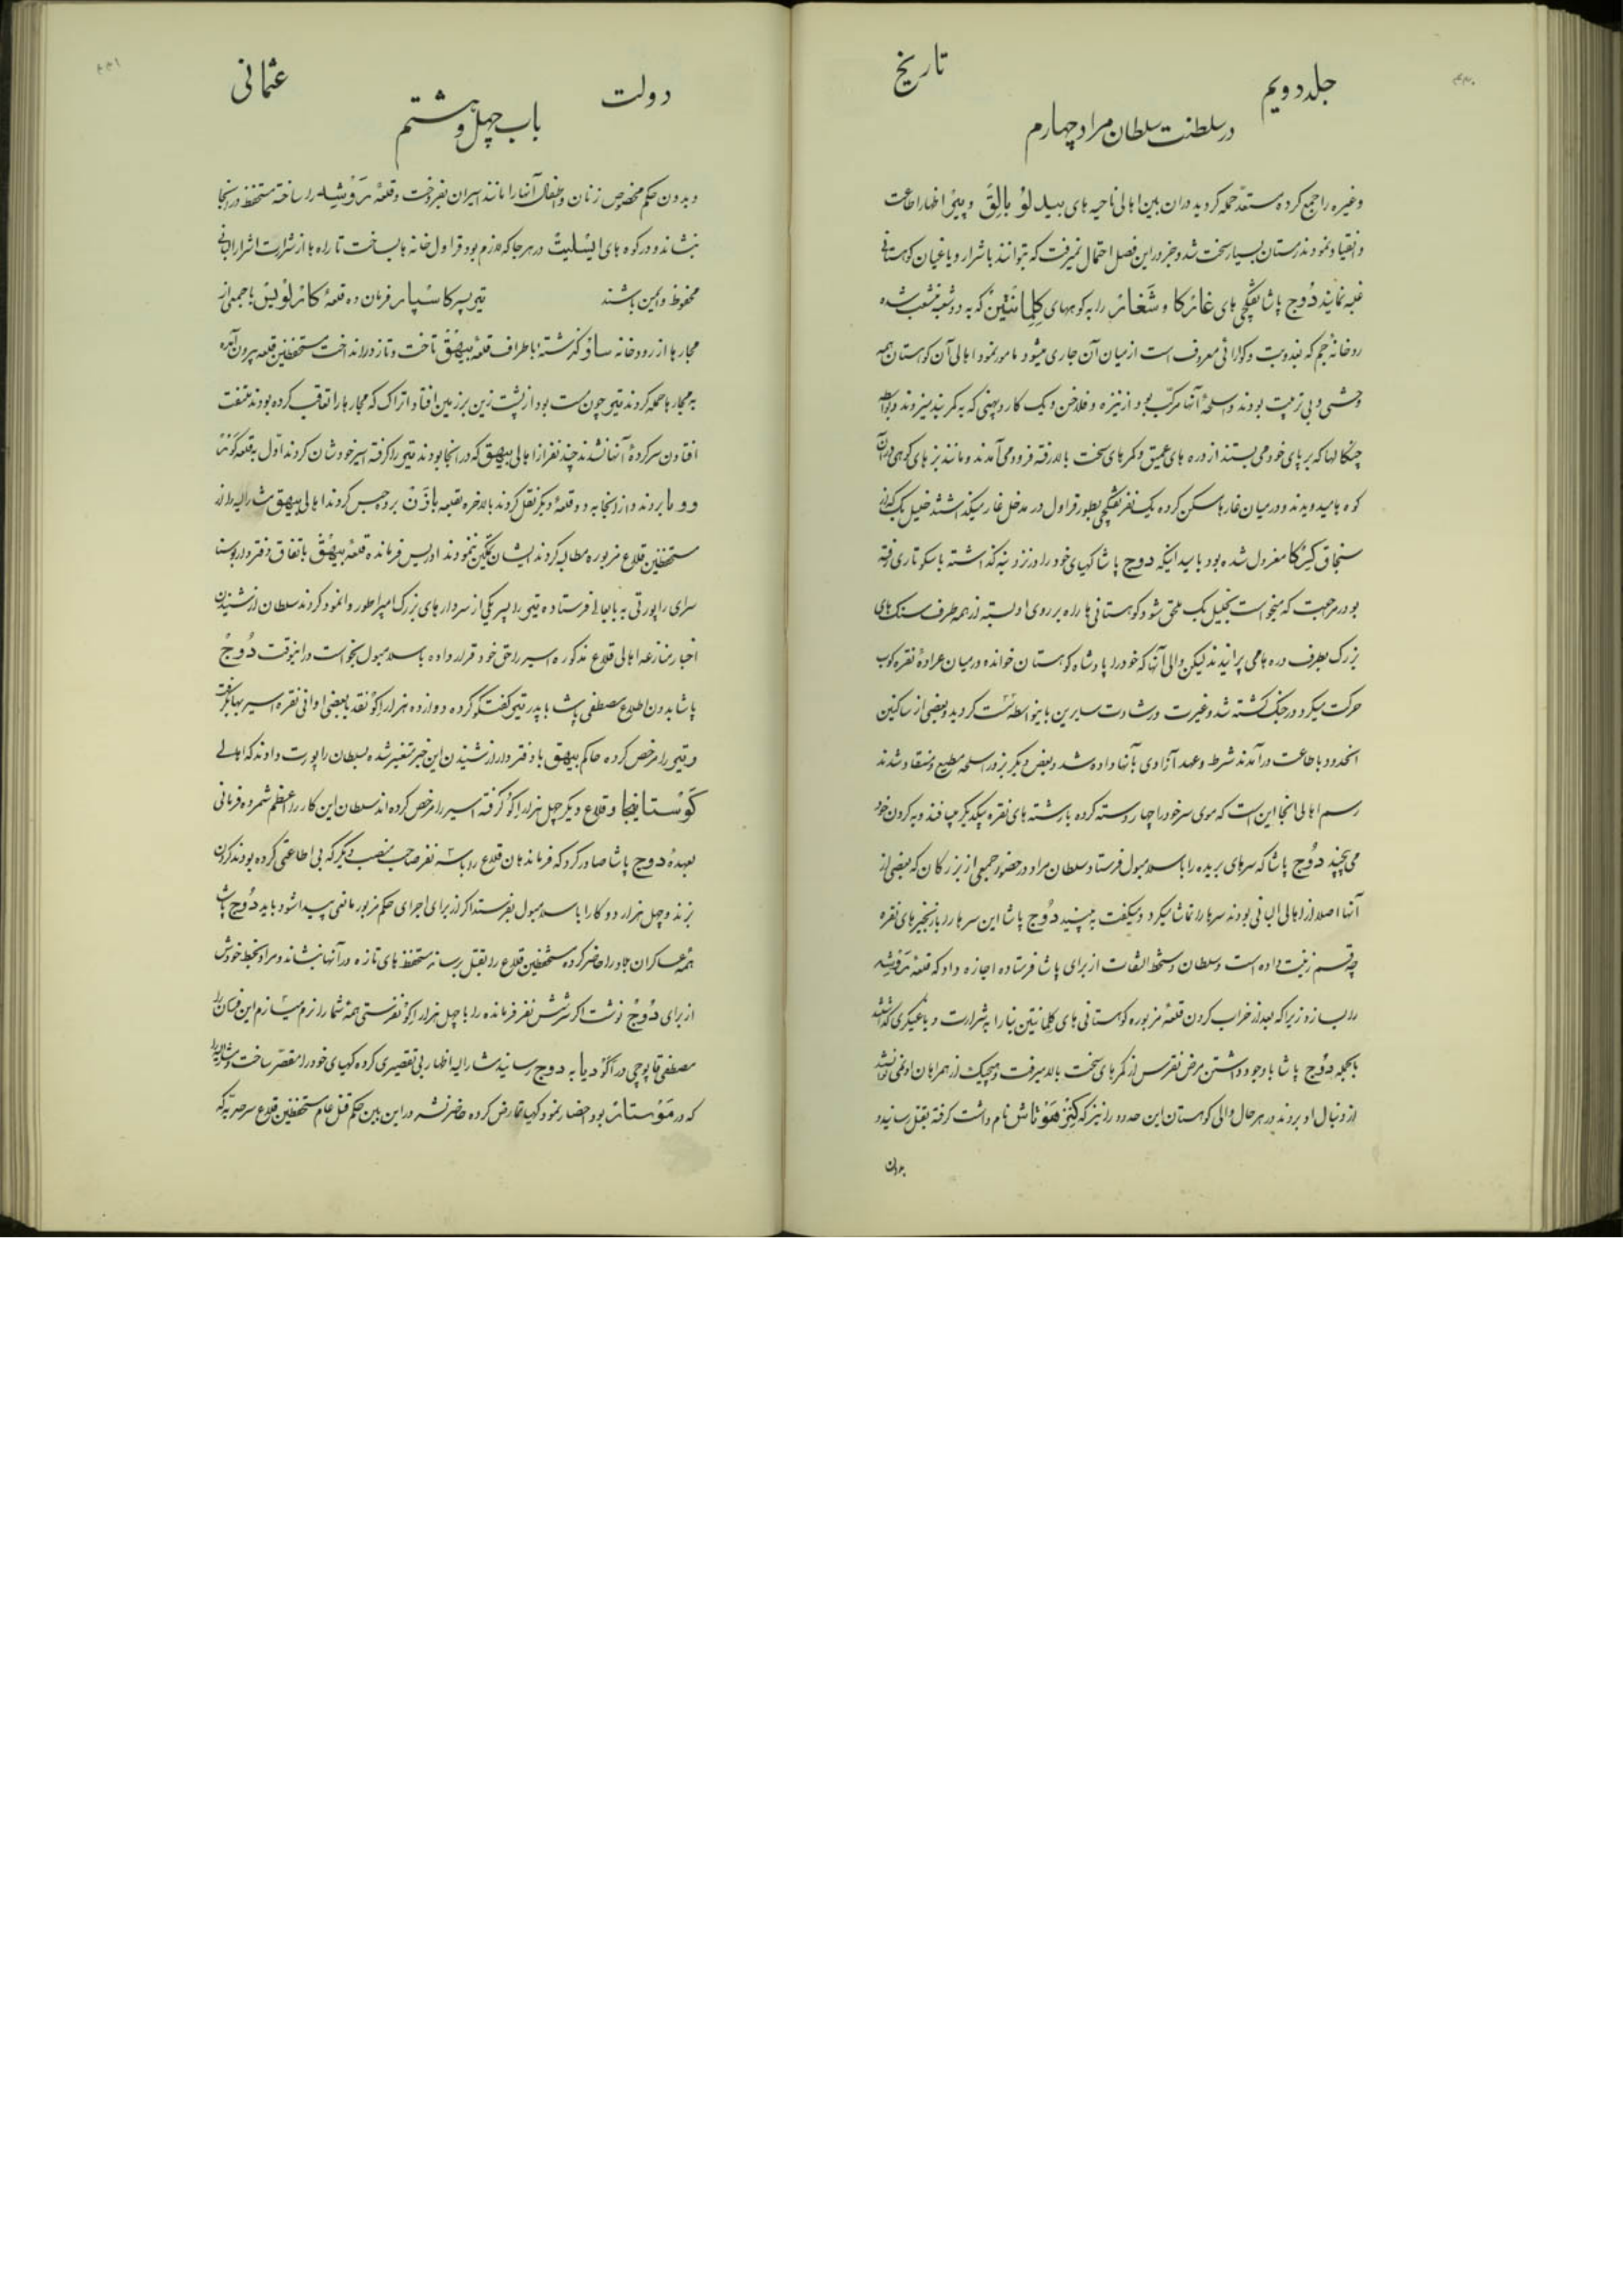 ۴۴۰
جلد دویم
تاریخ
در سلطنت سلطان مراد چهارم
وغیره را جمع کرده مستعدّ حمله کردید دران بین اهالی ناحیه های بیدلو بالِقَ و پیپر اظهار اطاعت
و انقیاد نمودند زمستان بسیار سخت شد و جز در این فصل احتمال نمیرفت که بتوانند باشرار و یاغیان کوهستانی
غلبه نمایند دُوج پاشا تفنکچی های غاترکا و شَغاتر را به کوههای کِلِمانتین که به دو شعبه منشعب شده
رودخانه جم که بغدویت و کولرائی معروف است از میان آن جاری میشود مامور نمود اهالی آن کوهستان همه
وحشی و بی تربیت بودند و اسلحۀ آنها مرکّب بود از نیزه و فلاخن و یک کارد پهنی که به کمر بند میزدند و بواسطه
چنکالها که بر پای خود می بستند از دره های عمیق و کمر های سخت بالا رفته فرود می آمدند و مانند بز های کوهی در آن
کوه ها میدویدند و در میان غارها مسکن کرده یک نفر تفنکچی بطور قراول در مدخل غار میکذاشتند خلیل بک که از
سنجاق کیرکا معزول شده بود با میدانیکه دوج پاشا کهیای خود را در نزد بنه کذاشته باسکوتاری رفته
بود در مرجعت که میخواست بخلیل بک ملحق شود کوهستانی ها راه بر روی او بسته از همه طرف سنک های
بزرک بطرف دره ها می پرانیدند لیکن والی آنها که خود را پادشاه کوهستان خوانده در میان عرادۀ نقره کوب
حرکت میکرد در جنک کشته شد و غیرت و رشادت سایرین باینواسطه سست کردید و بعضی از ساکنین
انحدود باطاعت درآمدند شرط و عهد آزادی بآنها داده شد و بعض دیکر بزور اسلحه مطیع و منقاد شدند
رسم اهالی انجا این است که موی سر خود را چهار دسته کرده با رشته های نقره بیکدیکر میبافند و به کردن خود
می پیچند دُوج پاشا که سرهای بریده را باسلامبول فرستاد سلطان مراد در حضور جمعی از بزرکان که بعضی از
آنها اصلاً از اهالی البانی بودند سرها را تماشا میکرد و میکفت به بینید دُوج پاشا این سرها را با زنجیر های نقره
چه قسم زینت داده است و سلطان دستخط التفات از برای پاشا فرستاده اجازه داد که قلعۀ تروشه
را بسازد زیرا که بعد از خراب کردن قلعۀ مزبوره کوهستانی های کلمانتین بنا را بشرارت و یاغیکری کذاشتند
بالجمله دُوج پاشا با وجود داشتن مرض نقرس از کمر های سخت بالا میرفت و هیچیک از همراهان او نمی توانستند
از دنبال او بروند در هر حال والی کوهستان این حدود را نیز که کِتِرهَوتاش نام داشت کرفته بقتل رسانید و
بدون
۴۴۱
دولت
عثمانی
باب چهل و هشتم
و بدون حکم مخصوص زنان و اطفال آنها را مانند اسیران بفروخت و قلعۀ تَروشه را ساخته مستحفظ در انجا
بنشاند و در کوه های ایسلیت در هر جا که لازم بود قراول خانه ها بساخت تا راه ها از شرارت اشرار البانی
محفوظ و ایمن باشند تیّی پسر کاسپار فرمانده قلعۀ کاترلویس با جمعی از
مجارها از رودخانه ساو کذشته باطراف قلعۀ بیهَق تاخت و تاز در انداخت مستحفظین قلعه بیرون آمده
به مجارها حمله کردند تیّی چون مست بود از پشت زین بر زمین افتاد اتراک که مجارها را تعاقب کرده بودند ملتفت
افتادن سرکردۀ آنها نشدند چند نفر از اهالی بیهق که در انجا بودند تیّی را کرفته اسیر خودشان کردند اوّل به قلعۀ
بردند و از انجا به دو قلعۀ دیکر نقل کردند بالاخره بقلعۀ باذن برده حبس کردند اهالی بیهق مشارالیه را از
مستحفظین قلاع مزبوره مطالبه کردند ایشان تمکین ننمودند ادریس فرمانده قلعۀ بیهق باتفاق دفتردار بوسنا
سرای راپورتی به بابعالی فرستاده تیّی را پسر یکی از سردار های بزرک امپراطور وانمود کردند سلطان از شنیدن
اخبار منازعۀ اهالی قلاع مذکوره اسیر را حق خود قرار داده باسلامبول بخواست در اینوقت دُوج
پاشا بدون اطلاع مصطفی پاشا با پدر تیّی کفتکو کرده دوازده هزار اکو نقد با بعضی اوانی نقره اسیر بها بکرفت
و تیّی را مرخص کرده حاکم بیهق با دفتردار از شنیدن این خبر متغیر شده بسلطان راپورت دادند که اهالی
کوستاینجا و قلاع دیکر چهل هزار اکو کرفته اسیر را مرخص کرده اند سلطان این کار را عظم شمرده فرمانی
بعهدۀ دوج پاشا صادر کرد که فرماندهان قلاع را با سه نفر صاحب منصب دیکر که بی اطاعتی کرده بودند کردن
بزند و چهل هزار دوکا را باسلامبول بفرستد اکر از برای اجرای حکم مزبور مانعی پیدا شود باید دُوج پاشا
همۀ عساکر ان جا را حاضر کرده مستحفظین قلاع را بقتل رسانده مستحفظ های تازه در آنها بنشاند و مراد بخط خودش
از برای دُوج نوشت اکر سر شش نفر فرمانده را با چهل هزار اکو نفرستی همۀ شما را نرم میسازم این فرمان را
مصطفی قاپوچی در اکودیا به دوج رسانید مشارالیه اظهار بی تقصیری کرده کهیای خود را مقصّر ساخت و مشارالیه را
که در مَوستار بود احضار نمود کهیا تمارض کرده حاضر نشد در این بین حکم قتل عام مستحفظین قلاع سرحدیّه که